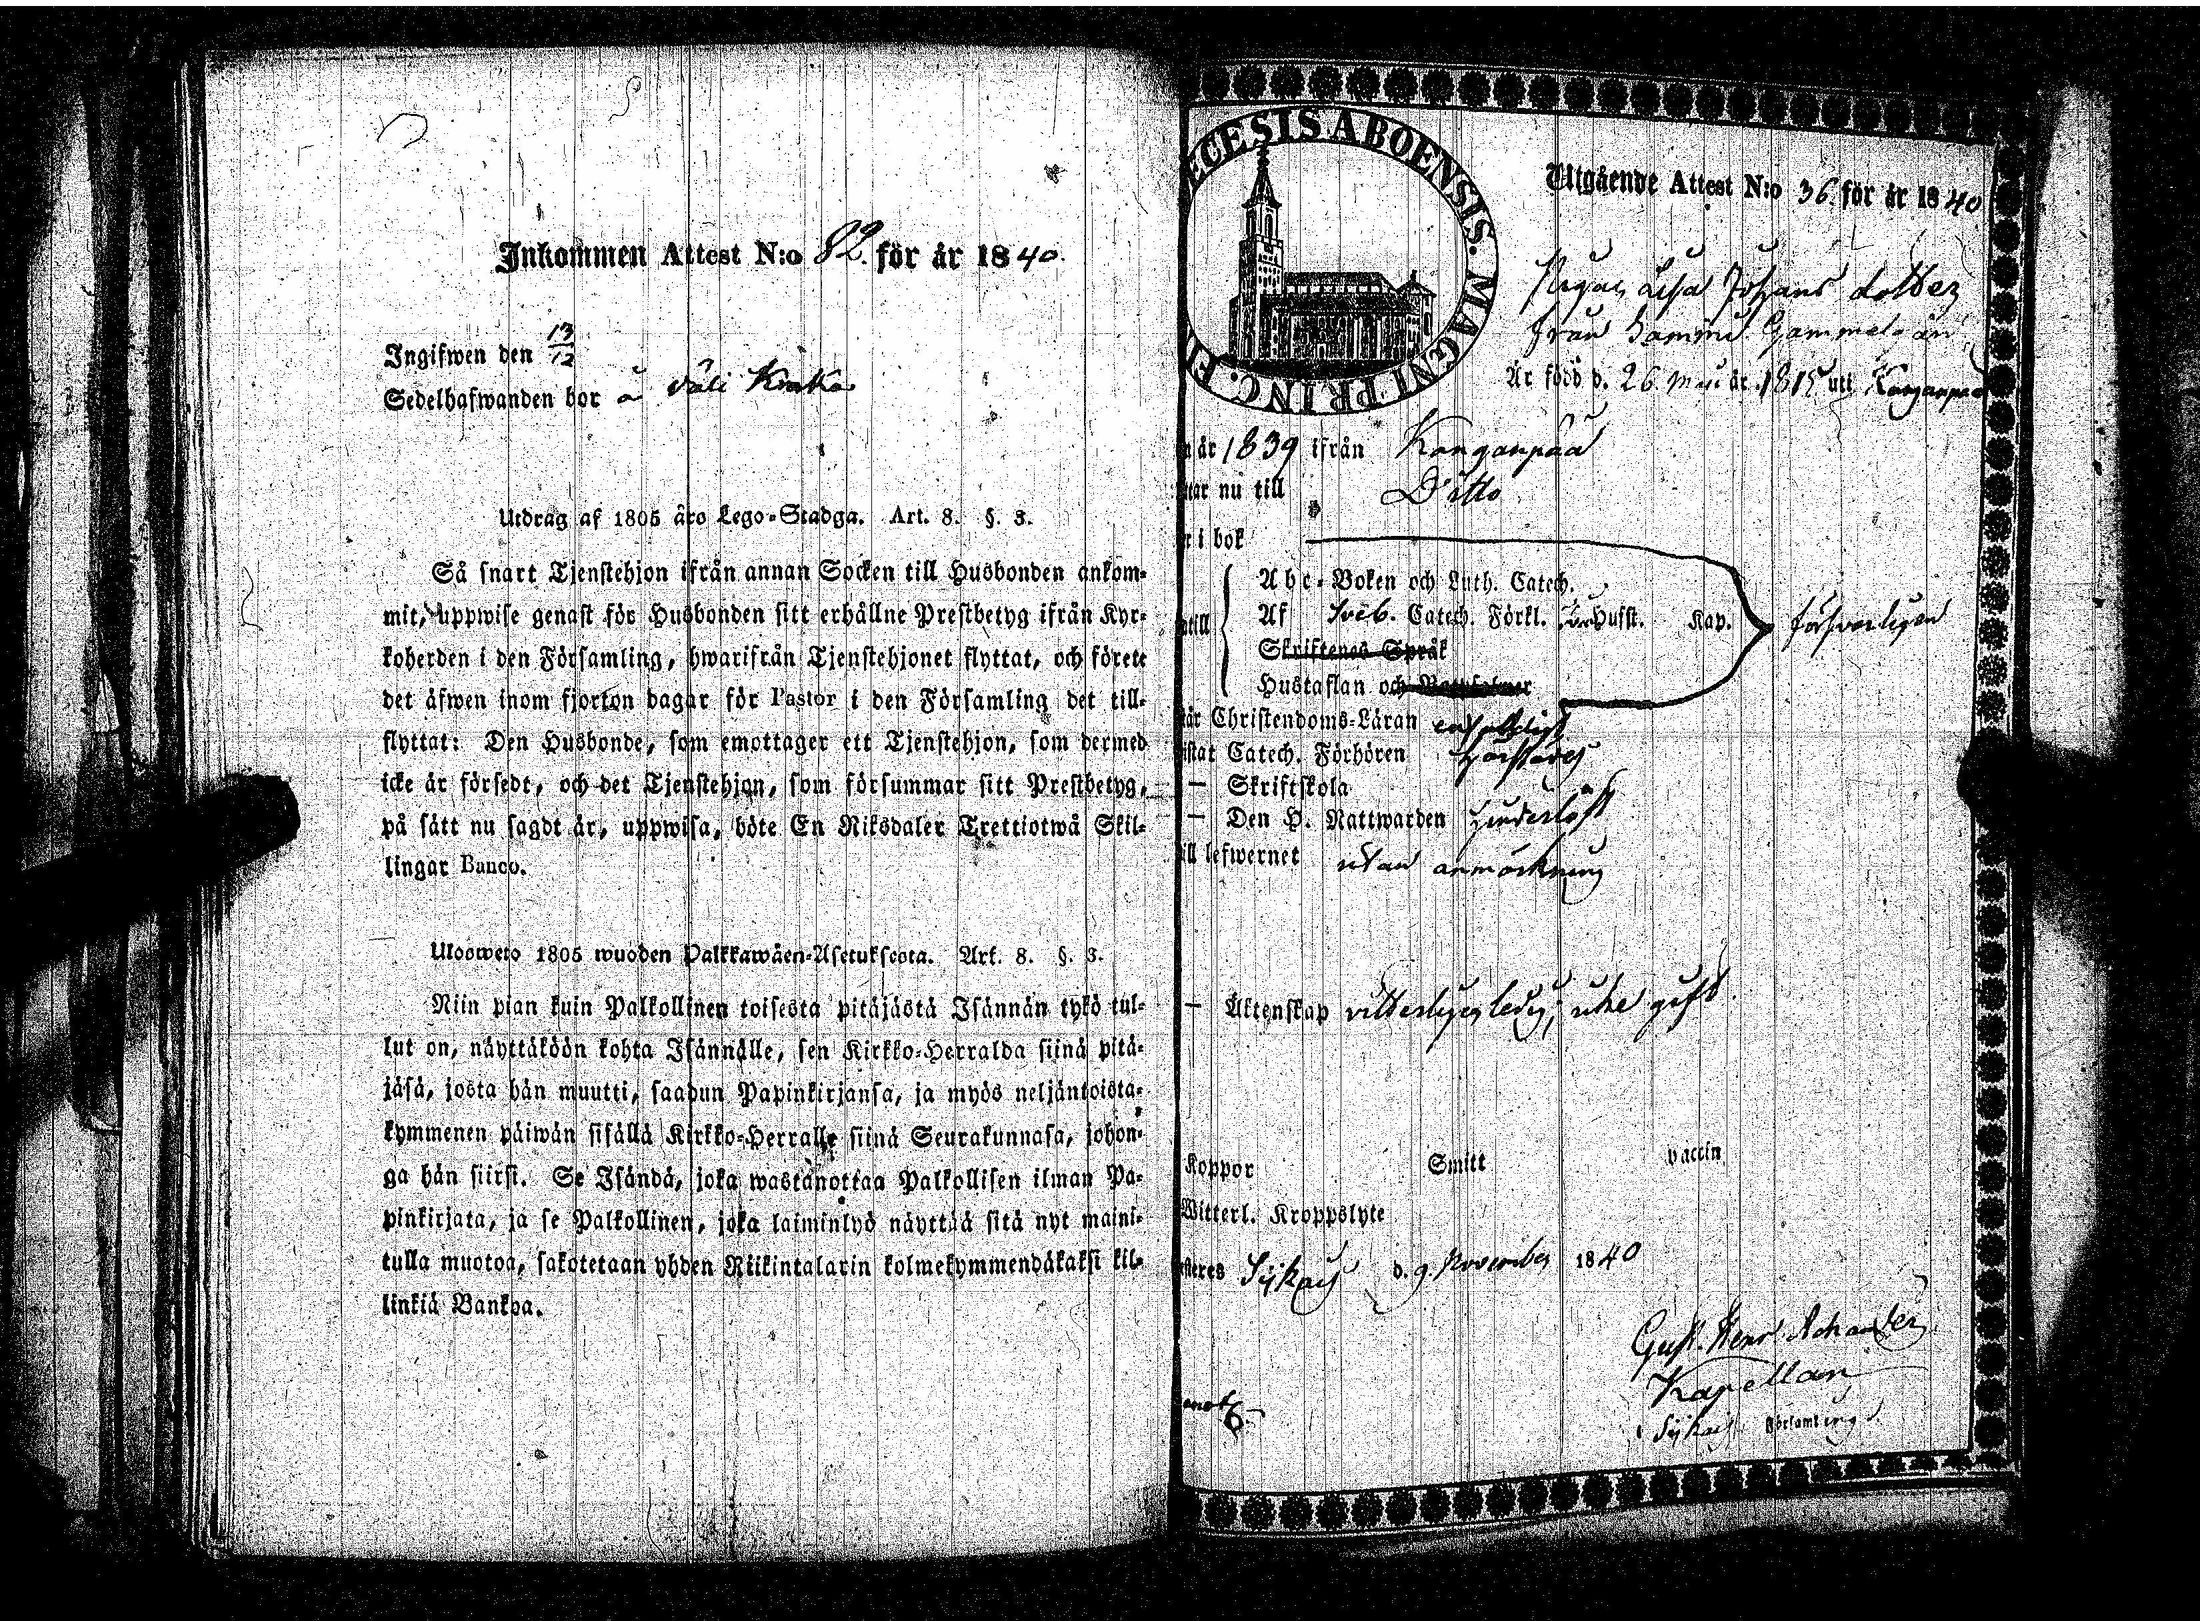 Inkommen Attest N:o 82. för år 1840.
Ingifwen den 13/12
Sedelhafwanden bor å Väli Kraka
Utdrag af 1805 års Lego-Stadga. Art. 8. §. 3.
Så snart Tjenstehjon ifrån annan Socken till Husbonden ankom-
mit, uppwise genast för Husbonden sitt erhållne Prestbetyg ifrån Kyr-
koherden i den Församling, hwarifrån Tjenstehjonet flyttat, och förete
det äfwen inom fjorton dagar för Pastor i den Församling det till-
flyttat: Den Husbonde, som emottager ett Tjenstehjon, som dermed
icke är försedt, och det Tjenstehjon, som försummar sitt Prestbetyg,
på sätt nu sagdt är, uppwisa, böte En Riksdaler Trettiotwå Skil-
lingar Banco.
Ulosweto 1805 wuoden Palkkawäen-Asetuksesta. Art. 8. §. 3.
Niin pian kuin Palkollinen toisesta pitäjästä Isännän tykö tul-
lut on, näyttäköön kohta Isännälle, sen Kirkko-Herralda siinä pitä-
jäsä, josta hän muutti, saadun Papinkirjansa, ja myös neljäntoista-
kymmenen päiwän sisällä Kirkko-Herralle siinä Seurakunnasa, johon-
ga hän siirsi. Se Isändä, joka wastanottaa Palkollisen ilman Pa-
pinkirjata, ja se Palkollinen, joka laiminlyö näyttää sitä nyt maini-
tulla muotoa, sakotetaan yhden Riikintalarin kolmekymmendäkaksi kil-
linkiä Bankoa.
ECESIS ABOENSIS. MAGNI PRINC. FI
Utgående Attest N:o 36 för år 1840
Pigan Johans dotter
från Gammel
Är född d. 26 Maii år 1815 uti Kanganpää
n år 1839 ifrån Kanganpää
ttar nu till Ditto
r i bok
Abc-Boken och Luth. Catech.
Af Sveb. Catech. Förkl. Hust. Kap. försvarligen
Skriftenes Språk
Hustaflan och
tår Christendoms-Läran enfaldigt
istat Catech. Förhören
— Skriftskola
— Den H. Nattwarden hinderlöst
ill lefwernet utan anmärkning
— Äktenskap vitterligen ledig;
Koppor Smitt vaccin
Witterl. Kroppslyte
steres Sijkais d. 9 November 1840
Gust. Henr.
Kapellan
i Sijkais Församling